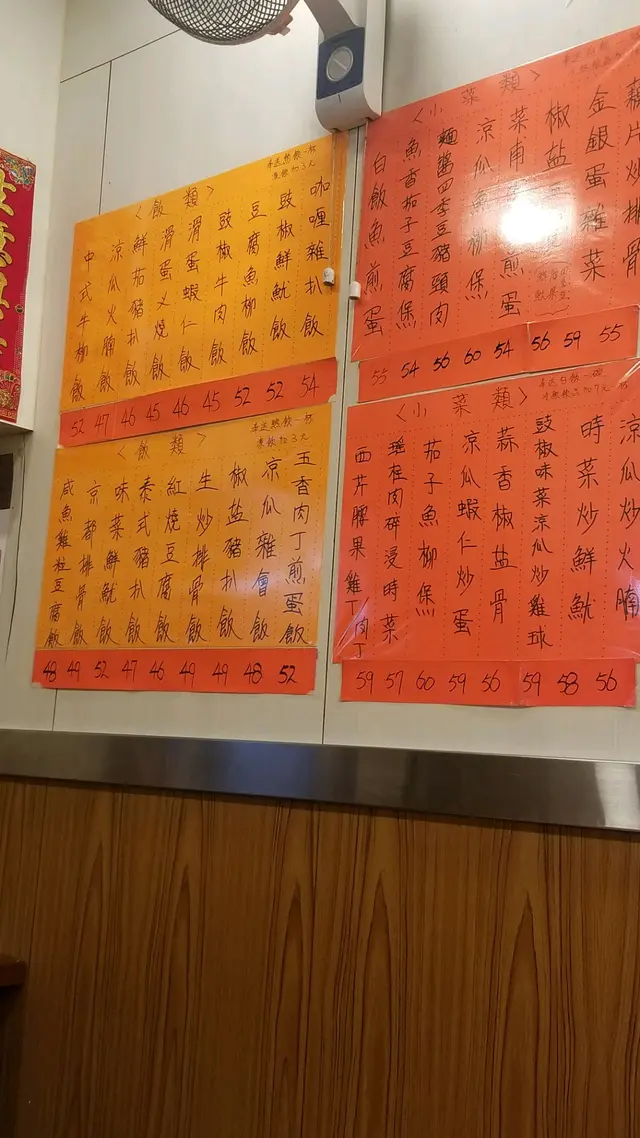 〈飯類〉
奉送熱飲一杯
凍飲加3元
咖喱雜扒飯
豉椒鮮魷飯
豆腐魚柳飯
豉椒牛肉飯
滑蛋蝦仁飯
滑蛋义燒飯
鮮茄豬扒飯
涼瓜火腩飯
中式牛柳飯
52 47 46 45 46 45 52 52 54
〈飯類〉
奉送熱飲一杯
凍飲加3元
玉香肉丁煎蛋飯
涼瓜雜會飯
椒盐豬扒飯
生炒排骨飯
紅燒豆腐飯
泰式豬扒飯
味菜鮮魷飯
京都排骨飯
咸魚雞粒豆腐飯
48 49 52 47 46 49 49 48 52
〈小菜類〉
藕片炒排骨
金銀蛋雜菜
椒盐
菜甫煎蛋
涼瓜魚柳煲
麵醬四季豆豬頸肉
魚香茄子豆腐煲
白飯魚煎蛋
55 54 56 60 54 56 59 55
〈小菜類〉
奉送白飯一碗
涼瓜炒火腩
時菜炒鮮魷
豉椒味菜涼瓜炒雞球
蒜香椒盐骨
涼瓜蝦仁炒蛋
茄子魚柳煲
瑤柱肉碎浸時菜
西芹腰果雞丁肉丁
59 57 60 59 56 59 58 56